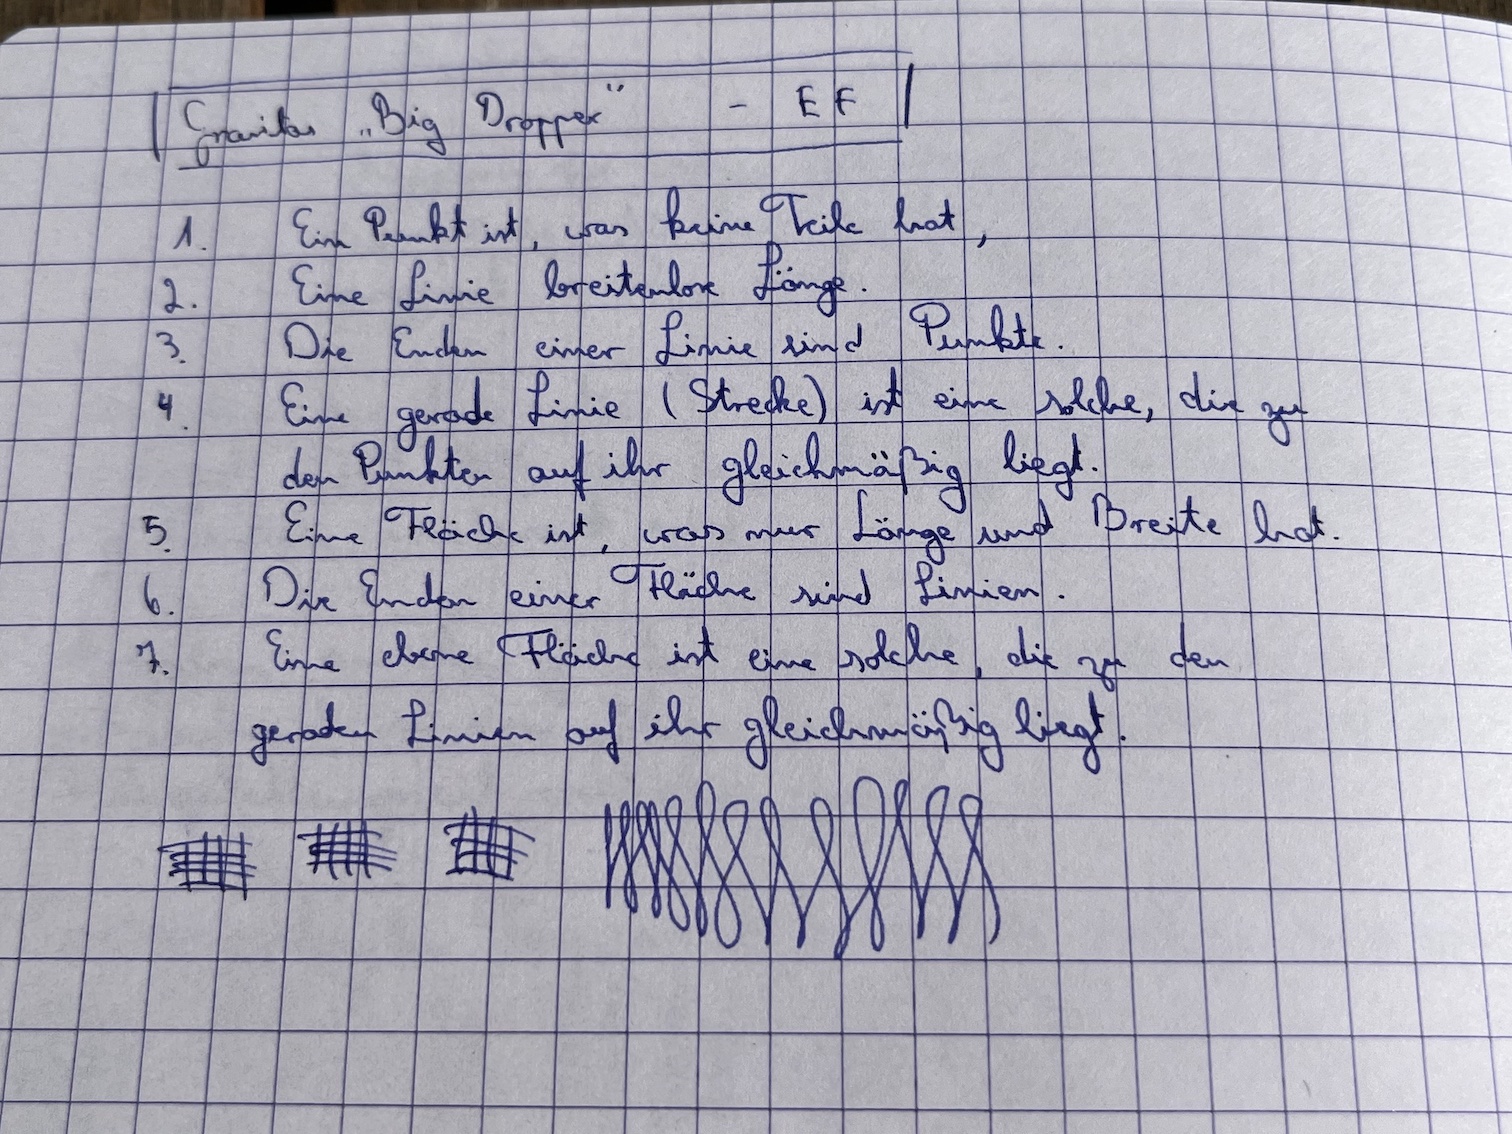 Gravitas „Big Dropper" - EF
1. Ein Punkt ist, was keine Teile hat,
2. Eine Linie breitenlose Länge.
3. Die Enden einer Linie sind Punkte.
4. Eine gerade Linie (Strecke) ist eine solche, die zu
den Punkten auf ihr gleichmäßig liegt.
5. Eine Fläche ist, was nur Länge und Breite hat.
6. Die Enden einer Fläche sind Linien.
7. Eine ebene Fläche ist eine solche, die zu den
geraden Linien auf ihr gleichmäßig liegt.